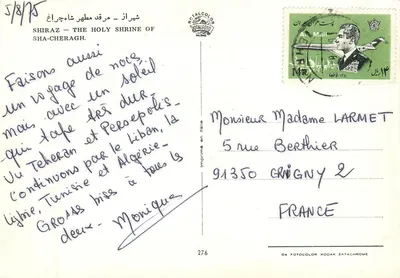 5/8/75
شیراز - مرقد مطهر شاهچراغ
SHIRAZ — THE HOLY SHRINE OF
SHA-CHERAGH.
Faisons aussi
un voyage de noces
mais avec un soleil
qui tape très dur.
Vu Teheran et Persepolis.
Continuons par le Liban, la
Lybie, Tunisie et Algérie.
Gross biss à tous les
deux.
Monique
Monsieur Madame LARMET
5 rue Berthier
91350 GRIGNY 2
FRANCE
276
FOTOCOLOR KODAK EKTACHROME